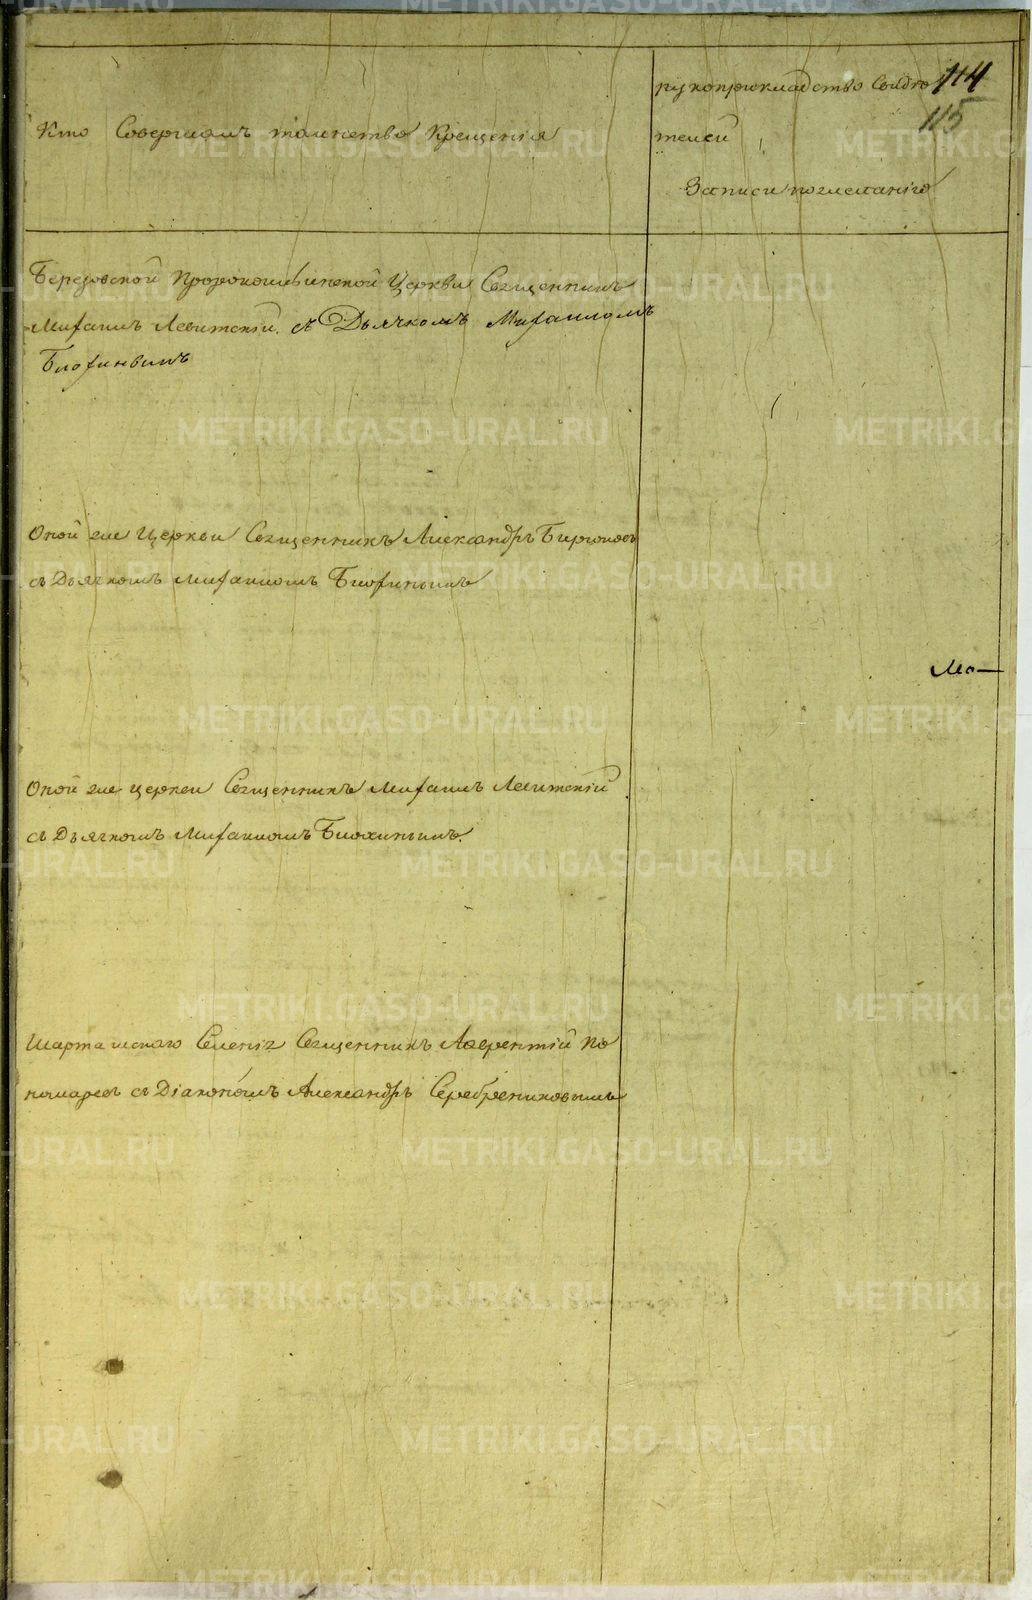 114
115
Кто Совершалъ таинство Крещенія
рукоприкладство Свидѣ
телей
Записи пожеланію
Березовской Пророкоильинской Церкви Священникъ
Михаилъ Левитскій съ Дьячкомъ Михаиломъ
Блохинымъ
Оной же Церкви Священникъ Александръ
съ Дьячкомъ Михаиломъ Блохинымъ
Ма—
Оной же церкви Священникъ Михаилъ Левитскій
съ Дьячкомъ Михаиломъ Блохинымъ.
Шарташскаго Селенія Священникъ Лаврентій По
номаревъ съ Діакономъ Александръ Серебрениковымъ
METRIKI.GASO-URAL.RU